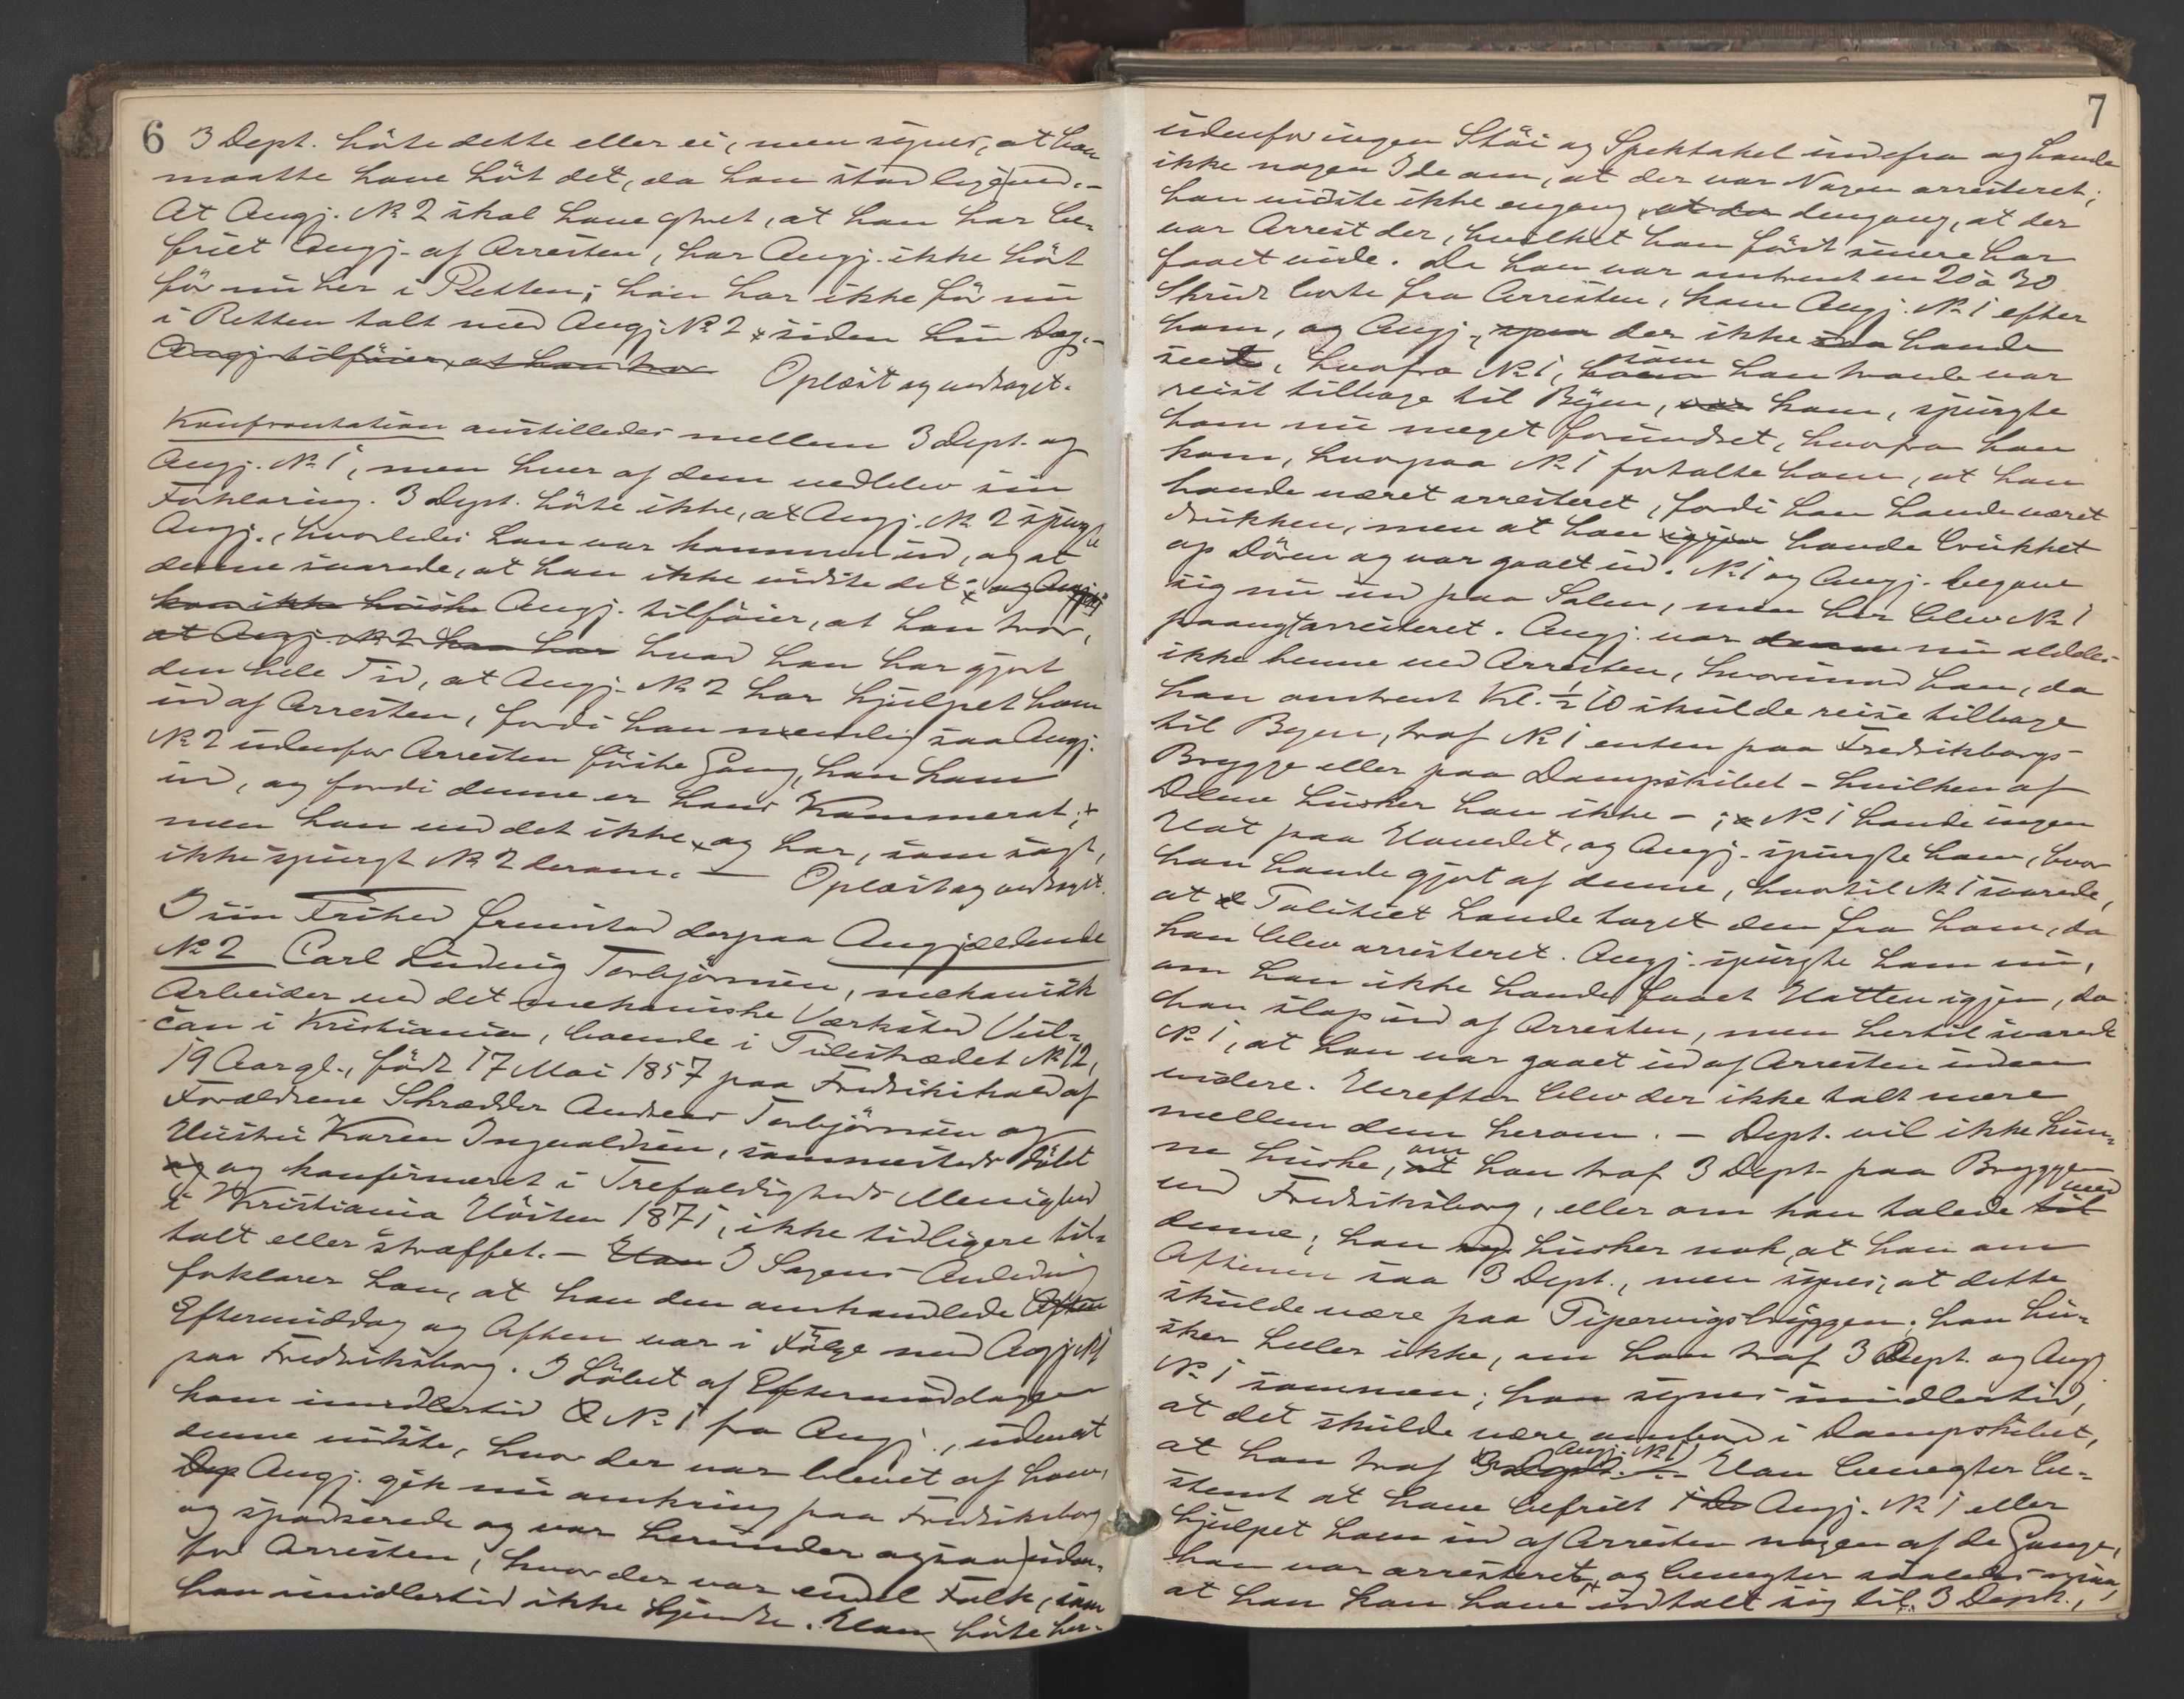 6
3 Dept. hørte dette eller ei, men synes, at han
maatte have hørt det, da han stod lige ved. –
At Angj. № 2 skal have ytret, at han har be-
friet Angj. af Arresten, har Angj. ikke hørt
før nu her i Retten; han har ikke før nu
i Retten talt med Angj. № 2 siden hin Dag. –
Angj. tilføier, at han tror
Oplæst og vedtaget.
Konfrontation anstilledes mellem 3 Dept. og
Angj. № 1, men hver af dem vedblev sin
Forklaring. 3 Dept. hørte ikke, at Angj. № 2 spurgte
Angj., hvorledes han var kommen ud, og at
denne svarede, at han ikke vidste det; og Angj.
kan ikke huske Angj. tilføier, at han tror,
at Angj. № 2 har hvad han har gjort
den hele Tid, at Angj. № 2 har hjulpet ham
ud af Arresten, fordi han nemlig saa Angj.
№ 2 udenfor Arresten første Gang, han kom
ud, og fordi denne er hans Kammerat;
men han ved det ikke, og har, som sagt,
ikke spurgt № 2 derom. – Oplæst og vedtaget.
I sin Frihed fremstod derpaa Angjældende
№ 2 Carl Ludvig Torbjørnsen, mekanisk
Arbeider ved det mekaniske Værksted Vul-
can i Kristiania, boende i Pilestrædet № 12,
19 Aar gl., født 17 Mai 1857 paa Fredrikshald af
Forældrene Skrædder Andreas Torbjørnsen og
Hustru Karen Ingvaldsen, sammesteds døbt
og konfirmeret i Trefoldigheds Menighed
i Kristiania Høsten 1871, ikke tidligere til-
talt eller straffet. – Han I Sagens Anledning
forklarer han, at han den omhandlede Aften
Eftermiddag og Aften var i Følge med Angj. № 1
paa Fredriksborg. I Løbet af Eftermiddagen
kom imidlertid № 1 fra Angj., uden at
denne vidste, hvor der var blevet af ham.
Dep Angj. gik nu omkring paa Fredriksborg
og spadserede og var herunder ogsaa uden-
for Arresten, hvor der var endel Folk, som
han imidlertid ikke kjendte. Han hørte her-
7
udenfor ingen Støi og Spektakel indefra og havde
ikke nogen Ide om, at der var Nogen arresteret;
han vidste ikke engang, at der dengang, at der
var Arrest der, hvilket han først senere har
faaet vide. Da han var omtrent en 20 à 30
Skridt borte fra Arresten, kom Angj. № 1 efter
ham, og Angj., der ikke saa havde
seet, hvorfra № 1, som han troede var
reist tilbage til Byen, kom, spurgte
ham nu meget forundret, hvorfra han
kom, hvorpaa № 1 fortalte ham, at han
havde været arresteret, fordi han havde været
drukken, men at han igjen havde brukket
op Døren og var gaaet ud. № 1 og Angj. begave
sig nu ind paa Salen, men her blev № 1
paanyt arresteret. Angj. var denne nu aldeles
ikke henne ved Arresten, hvorimod han, da
han omtrent Kl. ½ 10 skulde reise tilbage
til Byen, traf № 1 enten paa Fredriksborgs
Brygge eller paa Dampskibet – hvilken af
Delene husker han ikke – ; № 1 havde ingen
Hat paa Hovedet, og Angj. spurgte ham, hvor
han havde gjort af denne, hvortil № 1 svarede,
at Politiet havde taget den fra ham, da
han blev arresteret. Angj. spurgte ham nu,
om han ikke havde faaet Hatten igjen, da
han slap ud af Arresten, men hertil svarede
№ 1, at han var gaaet ud af Arresten uden
videre. Herefter blev der ikke talt mere
mellem dem herom. – Dept. vil ikke kun-
ne huske, om han traf 3 Dept. paa Bryggen
ved Fredriksborg, eller om han talede til med
denne; han husker nok, at han om
Aftenen saa 3 Dept., men synes, at dette
skulde være paa Pipervigsbryggen; han hu-
sker heller ikke, om han traf 3 Dept. og Angj.
№ 1 sammen; han synes imidlertid,
at det skulde være ombord i Dampskibet,
at han traf 3 Dept. Angj. № 1. – Han benegter be-
stemt at have befriet Angj. № 1 eller
hjulpet ham ud af Arresten nogen af de Gange,
han var arresteret, og benegter saaledes ogsaa,
at han kan have udtalt sig til 3 Dept.,